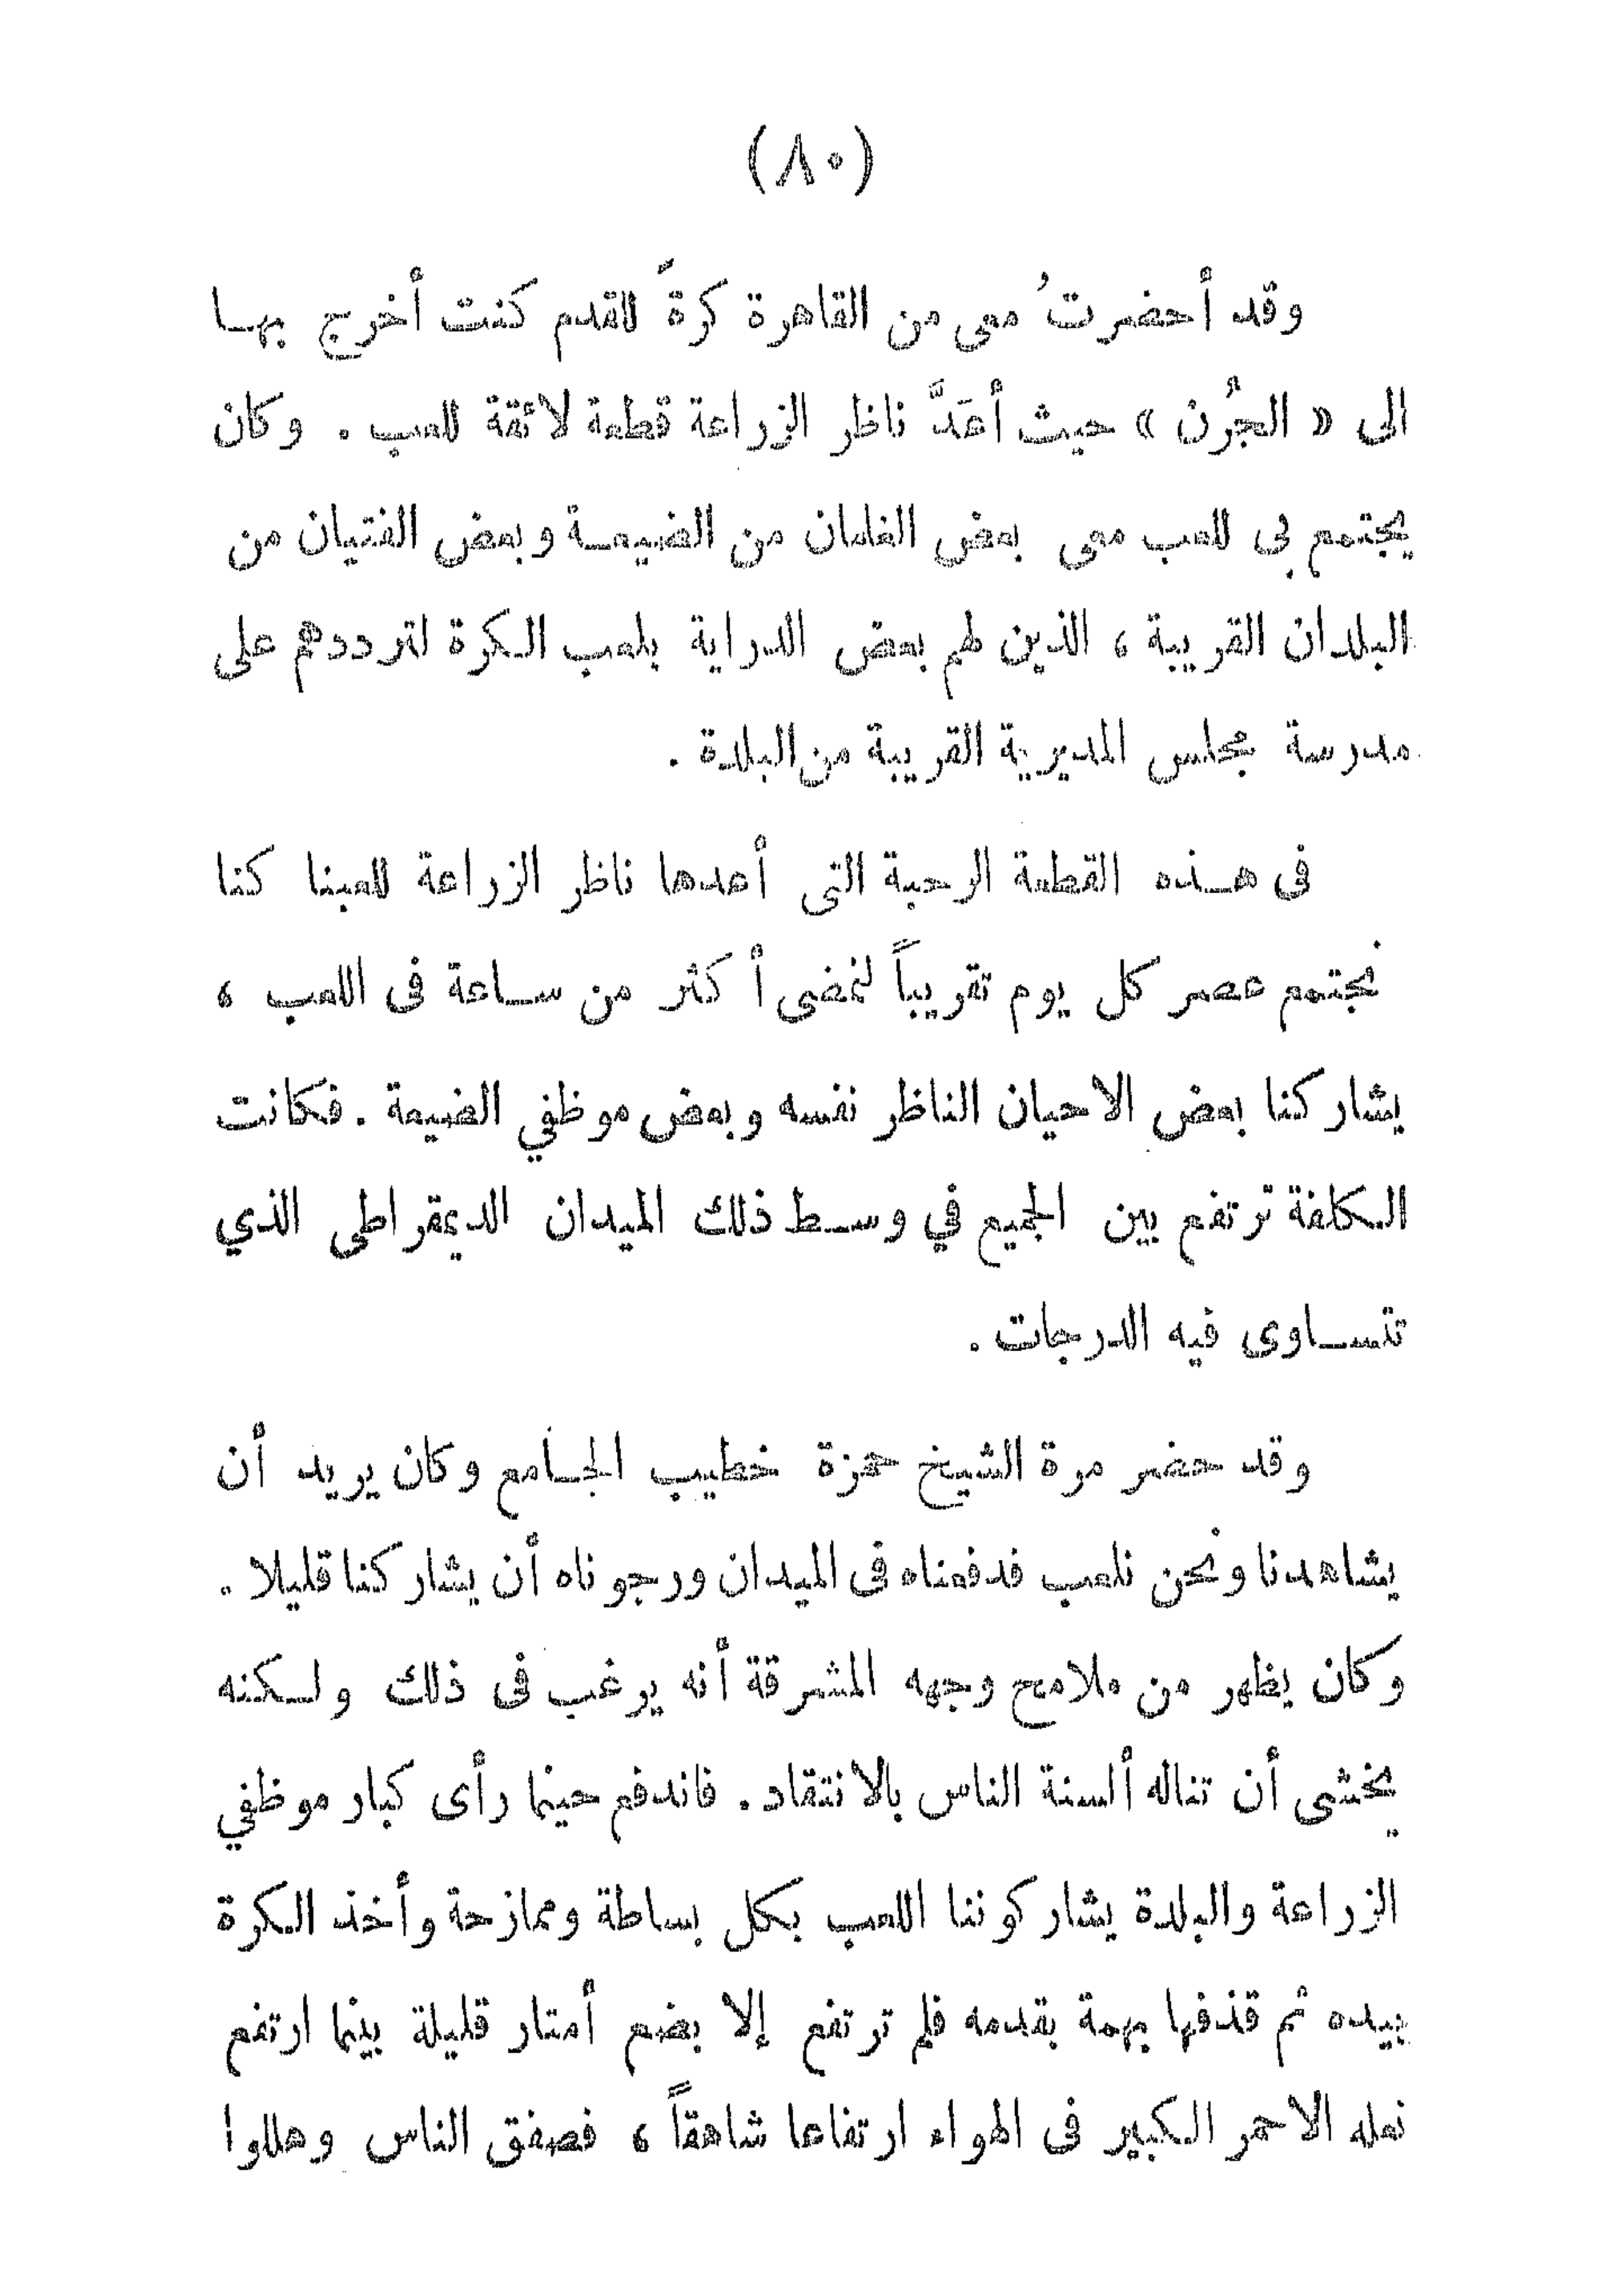 (٨٠)
وقد أحضرتُ معى من القاهرة كرةً للقدم كنت أخرج بها
الى « الجُرْن » حيث أعَدَّ ناظر الزراعة قطعة لائقة للعب . وكان
يجتمع بى للعب معى بعض الغلمان من الضيعة وبعض الفتيان من
البلدان القريبة ، الذين لهم بعض الدراية بلعب الكرة لترددهم على
مدرسة مجلس المديرية القريبة من البلدة .
فى هذه القطعة الرحبة التى أعدها ناظر الزراعة للعبنا كنا
نجتمع عصر كل يوم تقريباً لنمضى أكثر من ساعة فى اللعب ،
يشاركنا بعض الاحيان الناظر نفسه وبعض موظفي الضيعة . فكانت
الكلفة ترتفع بين الجميع في وسط ذلك الميدان الديمقراطى الذي
تتساوى فيه الدرجات .
وقد حضر مرة الشيخ حمزة خطيب الجامع وكان يريد أن
يشاهدنا ونحن نلعب فدفعناه فى الميدان ورجوناه أن يشاركنا قليلا .
وكان يظهر من ملامح وجهه المشرقة أنه يرغب فى ذلك ولكنه
يخشى أن تناله ألسنة الناس بالانتقاد . فاندفع حينما رأى كبار موظفي
الزراعة والبلدة يشاركوننا اللعب بكل بساطة وممازحة وأخذ الكرة
بيده ثم قذفها بهمة بقدمه فلم ترتفع إلا بضع أمتار قليلة بينما ارتفع
نعله الاحمر الكبير فى الهواء ارتفاعا شاهقاً ، فصفق الناس وهللوا